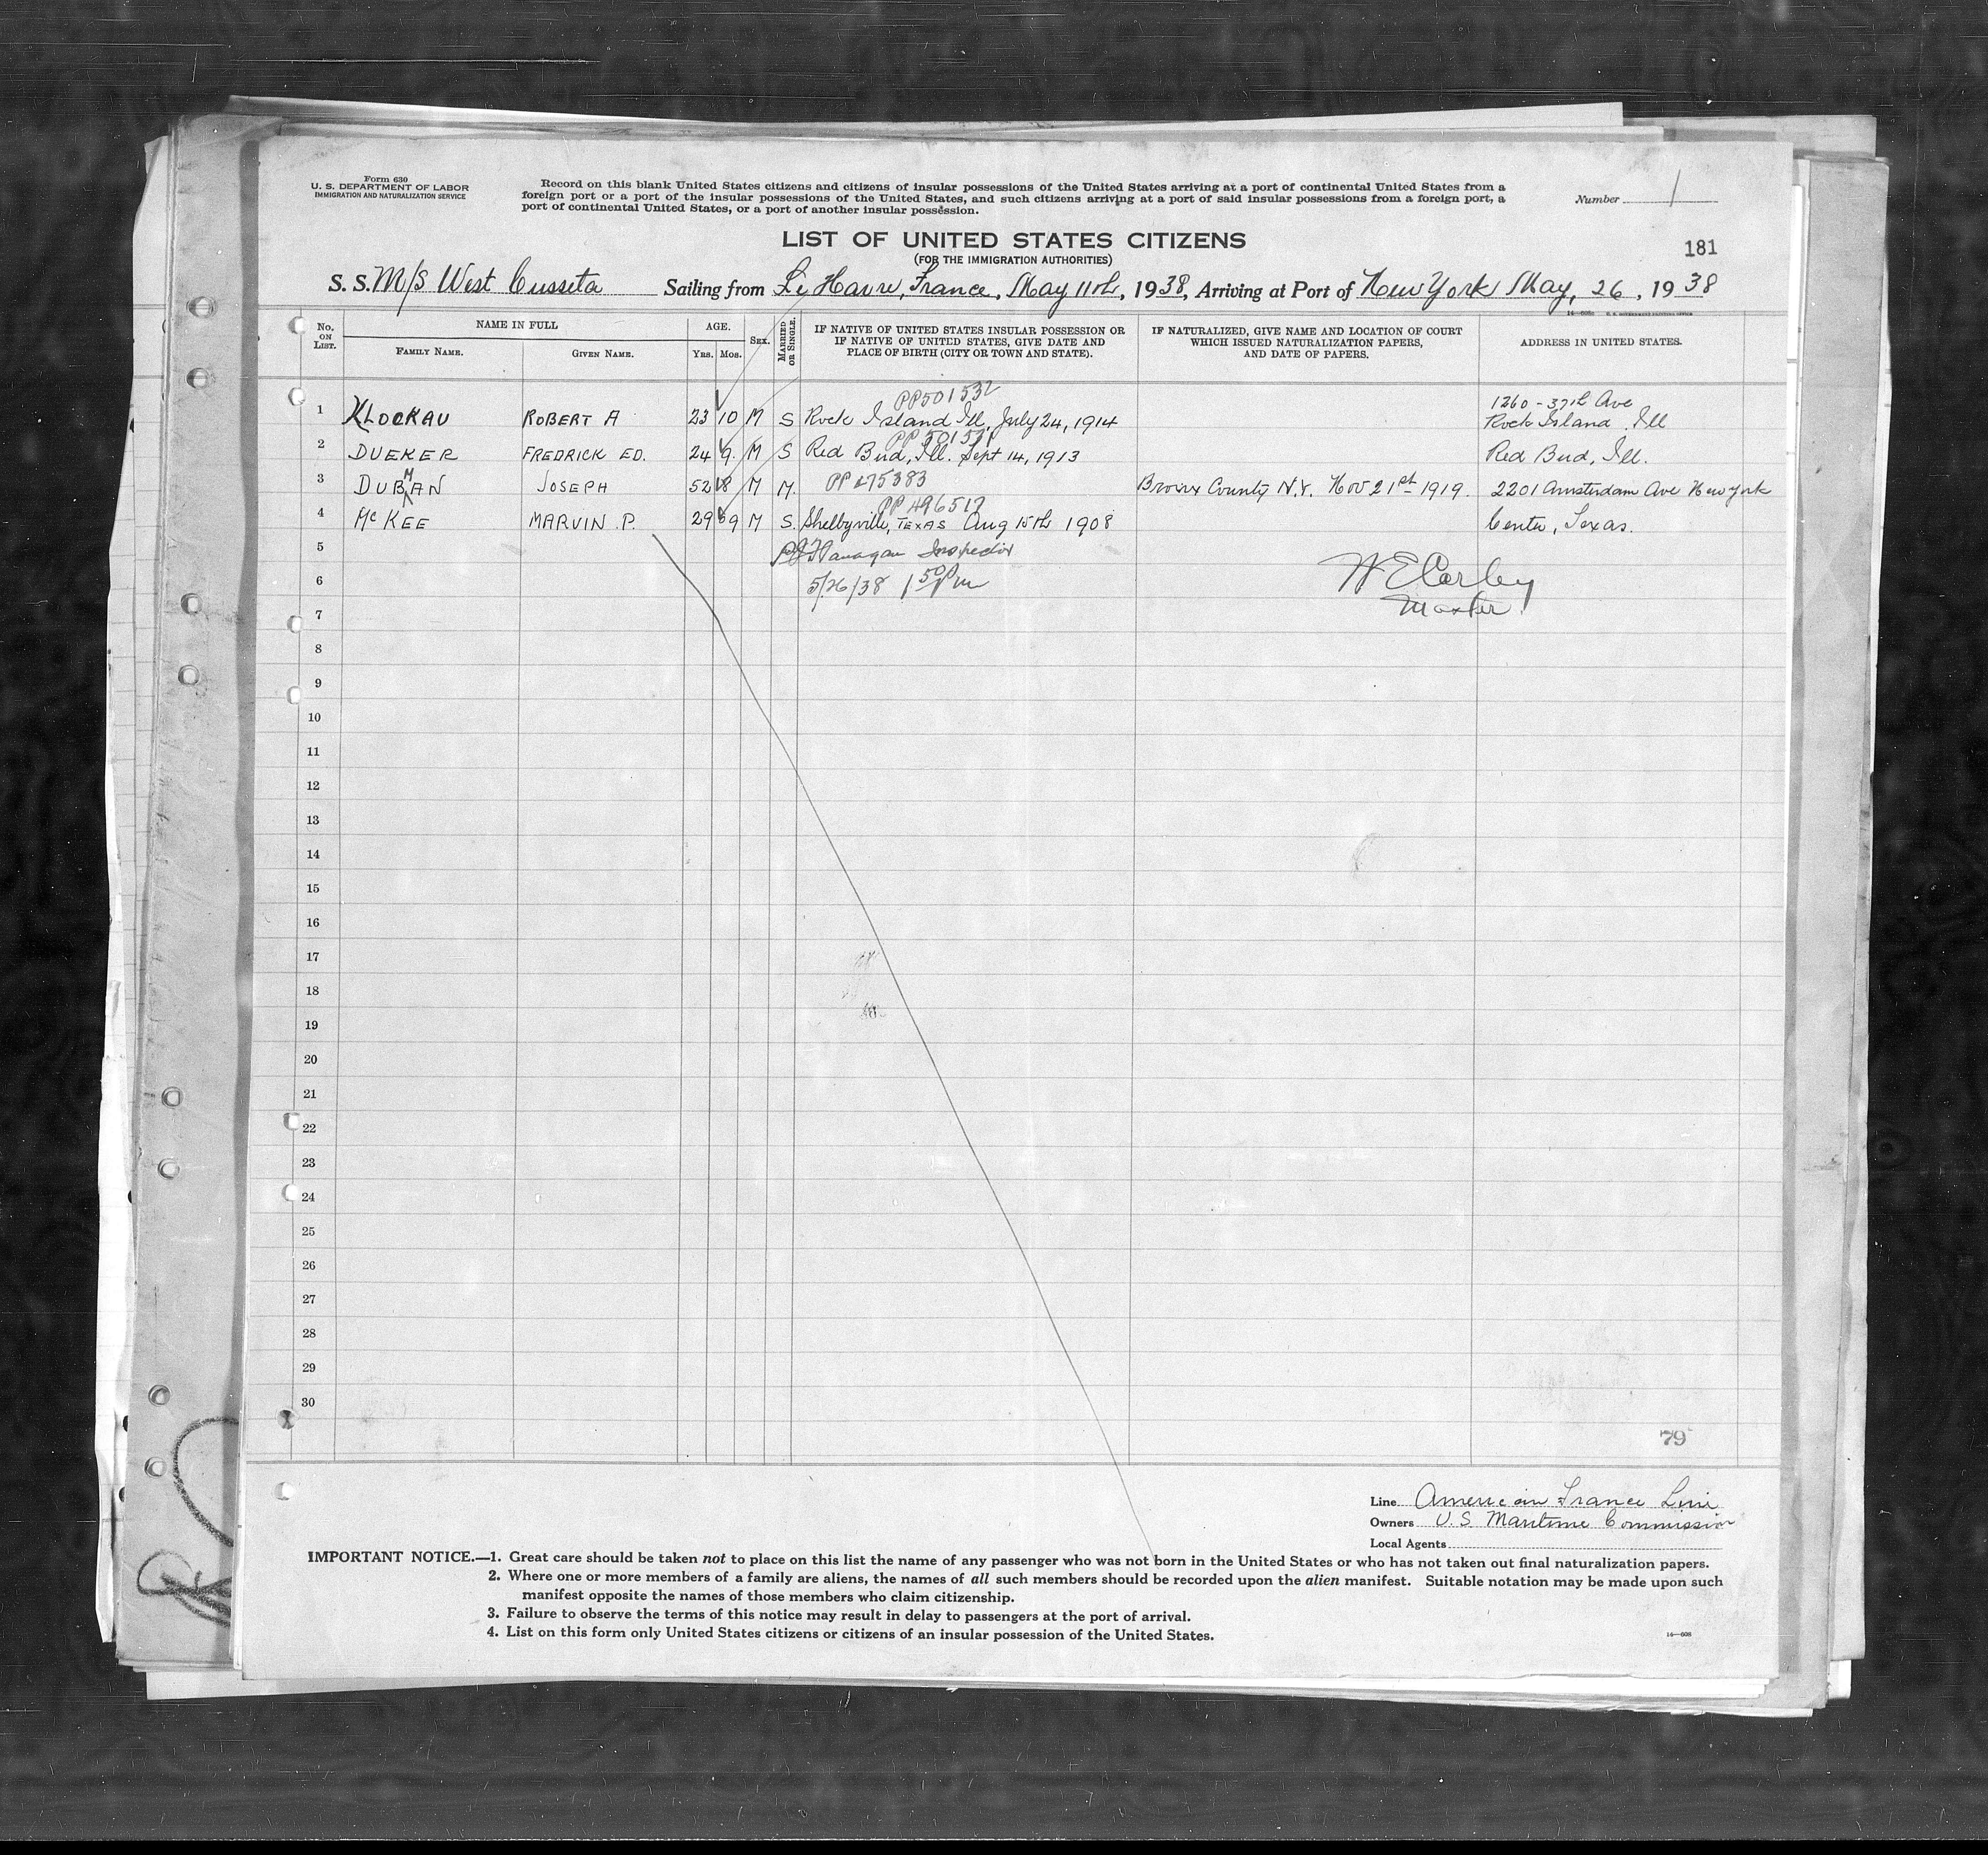 Form 630
U. S. DEPARTMENT OF LABOR
IMMIGRATION AND NATURALIZATION SERVICE
Record on this blank United States citizens and citizens of insular possessions of the United States arriving at a port of continental United States from a
foreign port or a port of the insular possessions of the United States, and such citizens arriving at a port of said insular possessions from a foreign port, a
port of continental United States, or a port of another insular possession.
Number 1
LIST OF UNITED STATES CITIZENS
(FOR THE IMMIGRATION AUTHORITIES)
181
S. S. M/S West Cusseta Sailing from Le Havre, France, May 11th, 1938, Arriving at Port of New York May, 26, 1938
No. ON LIST. NAME IN FULL FAMILY NAME. GIVEN NAME. AGE. YRS. MOS. SEX. MARRIED OR SINGLE. IF NATIVE OF UNITED STATES INSULAR POSSESSION OR IF NATIVE OF UNITED STATES, GIVE DATE AND PLACE OF BIRTH (CITY OR TOWN AND STATE). IF NATURALIZED, GIVE NAME AND LOCATION OF COURT WHICH ISSUED NATURALIZATION PAPERS, AND DATE OF PAPERS. ADDRESS IN UNITED STATES.
PP501532
1260 - 37th Ave
1 KLOCKAU ROBERT A 23 10 M S Rock Island Ill, July 24, 1914 Rock Island, Ill
PP 501531
2 DUEKER FREDRICK ED. 24 9. M S Red Bud, Ill. Sept 14, 1913 Red Bud, Ill.
PP 275383
3 DUBMAN JOSEPH 52 8 M M. Bronx County N.Y. Nov 21st 1919. 2201 Amsterdam Ave New York
PP 496517
4 McKEE MARVIN P. 29 9 M S. Shelbyville, TEXAS Aug 15th 1908 Center, Texas.
5 Flanagan Inspector
6 5/26/38 1 50 Pm W E Corley
7 Master
8
9
10
11
12
13
14
15
16
17
18
19
20
21
22
23
24
25
26
27
28
29
30
79
Line American France Line
Owners U. S. Maritime Commission
Local Agents
IMPORTANT NOTICE.—1. Great care should be taken not to place on this list the name of any passenger who was not born in the United States or who has not taken out final naturalization papers.
2. Where one or more members of a family are aliens, the names of all such members should be recorded upon the alien manifest. Suitable notation may be made upon such
manifest opposite the names of those members who claim citizenship.
3. Failure to observe the terms of this notice may result in delay to passengers at the port of arrival.
4. List on this form only United States citizens or citizens of an insular possession of the United States.
14—608